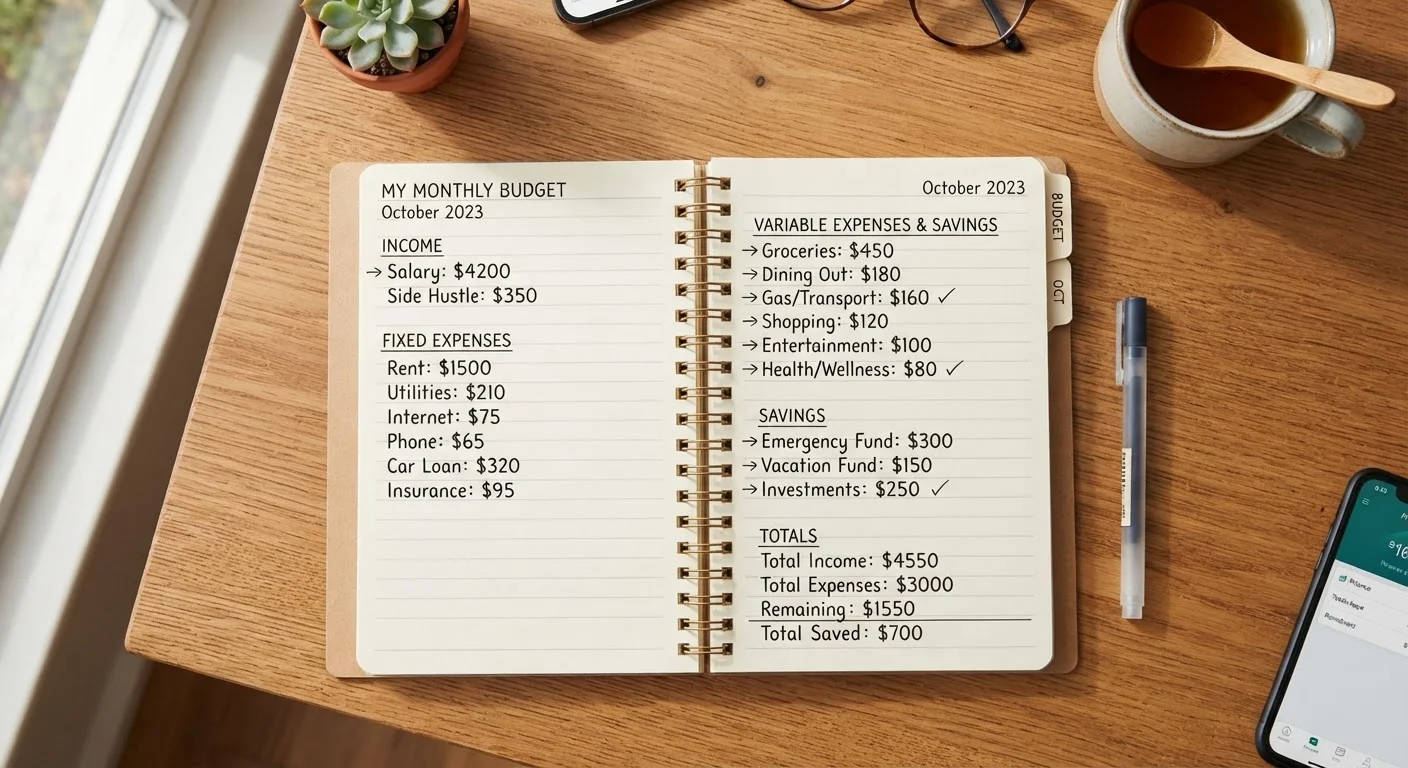 MY MONTHLY BUDGET
October 2023
INCOME
→ Salary: $4200
Side Hustle: $350
FIXED EXPENSES
Rent: $1500
Utilities: $210
Internet: $75
Phone: $65
Car Loan: $320
Insurance: $95
October 2023
VARIABLE EXPENSES & SAVINGS
→ Groceries: $450
→ Dining Out: $180
→ Gas/Transport: $160 ✓
→ Shopping: $120
→ Entertainment: $100
→ Health/Wellness: $80 ✓
SAVINGS
→ Emergency Fund: $300
→ Vacation Fund: $150
→ Investments: $250 ✓
TOTALS
Total Income: $4550
Total Expenses: $3000
Remaining: $1550
Total Saved: $700
BUDGET
OCT